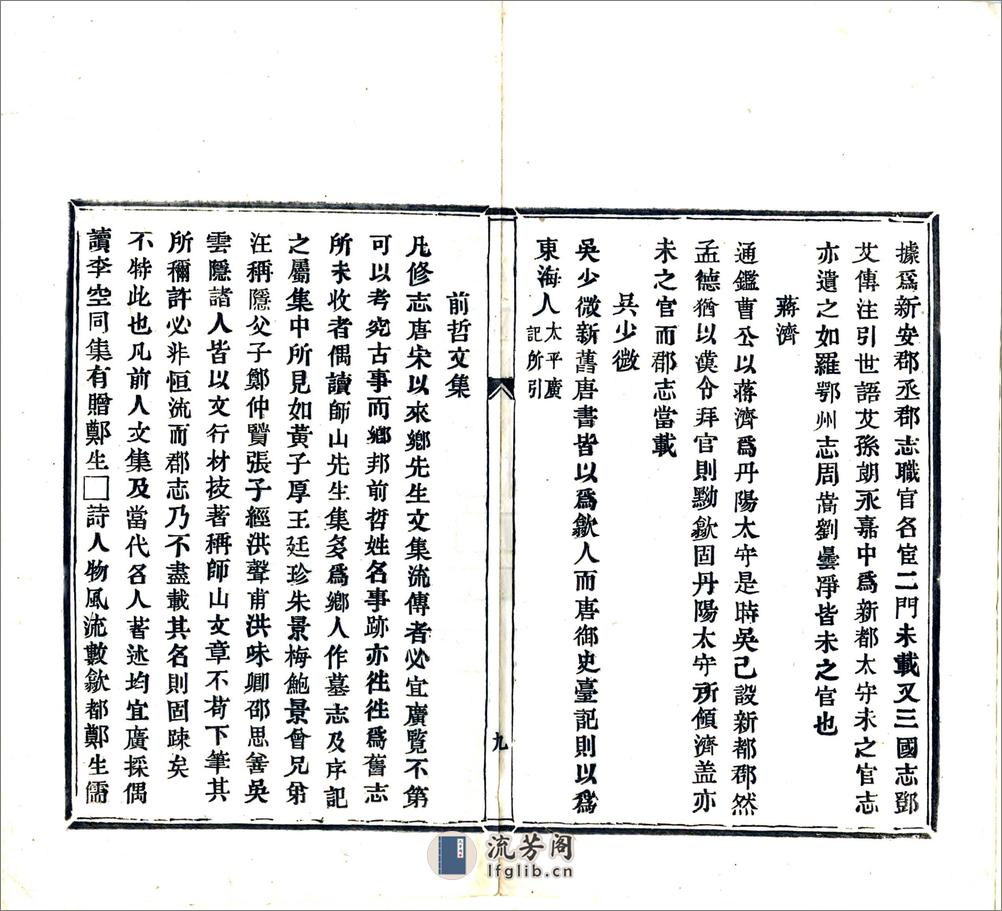 據爲新安郡丞郡志職官名宦二門未載又三國志鄧
艾傳注引世語艾孫朗永嘉中爲新都太守未之官志
亦遺之如羅鄂州志周嵩劉曇凈皆未之官也
蔣濟
通鑑曹公以蔣濟爲丹陽太守是時吳已設新都郡然
孟德猶以漢令拜官則黝歙固丹陽太守所領濟盖亦
未之官而郡志當載
吳少微
吳少微新舊唐書皆以爲歙人而唐御史臺記則以爲
東海人太平廣記所引
九
前哲文集
凡修志唐宋以來鄉先生文集流傳者必宜廣覽不第
可以考究古事而鄉邦前哲姓名事跡亦徃徃爲舊志
所未收者偶讀師山先生集多爲鄉人作墓志及序記
之屬集中所見如黃子厚王廷珍朱景梅鮑景曾兄弟
汪稱隱父子鄭仲賢張子經洪聲甫洪味卿邵思善吳
雲隱諸人皆以文行材技著稱師山文章不苟下筆其
所稱許必非恒流而郡志乃不盡載其名則固踈矣
不特此也凡前人文集及當代各人著述均宜廣採偶
讀李空同集有贈鄭生□詩人物風流數歙都鄭生儒
流芳阁
lfglib.cn